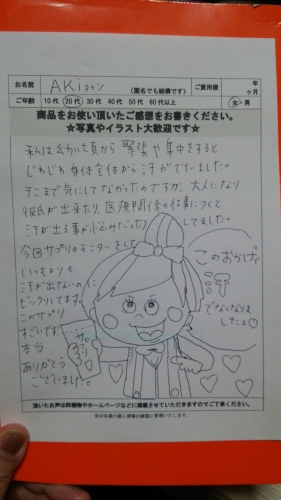 お名前 AKiチャン (匿名でも結構です) ご愛用暦 年 ヶ月
ご年齢 10代 20代 30代 40代 50代 60代以上 女・男
商品をお使い頂いたご感想をお書きください。
★写真やイラスト大歓迎です★
私は幼い頃から緊張や集中をすると
じわじわ身体全体から汗がでていました。
そこまで気にしてなかったのですが、大人になり
彼氏が出来たり、医療関係の仕事につくと
汗が出る事が悩みだったりしてました。
今回サプリのモニターをして
いつもよりも
汗が出ないのに
ビックリしてます。
このサプリ
すごいです
本当
ありがとう
ございました。
このおかげで
汗
でなくなりま
した♡
サプリ
頂いたお声は同梱物やホームページなどに掲載させていただきますのでご了承ください。